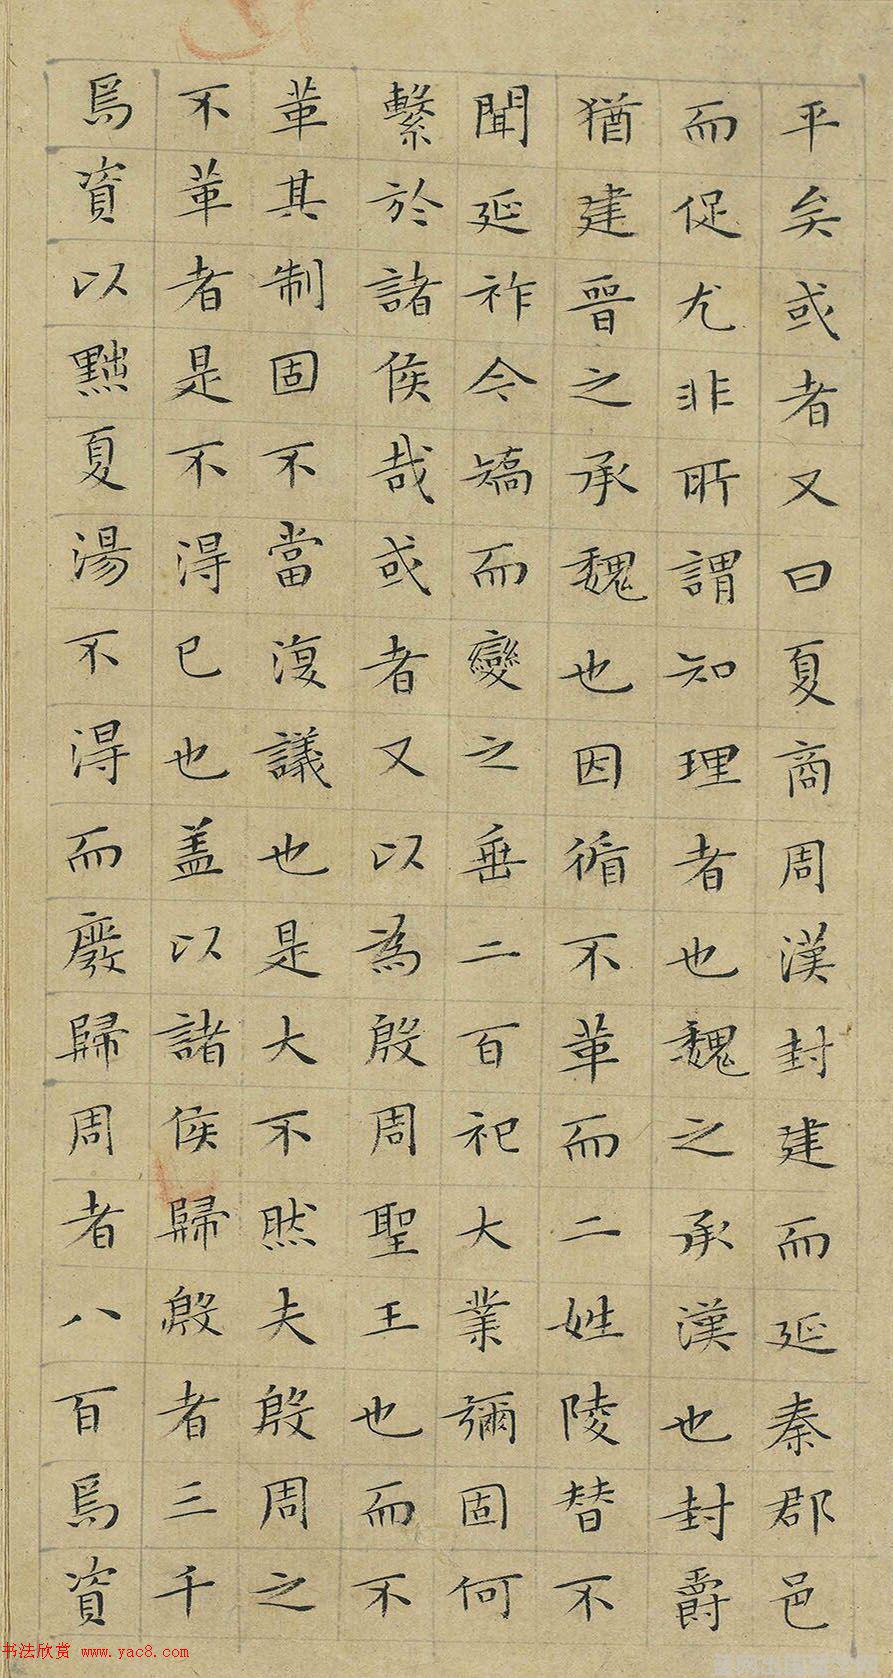 平矣或者又曰夏商周漢封建而延秦郡邑
而促尤非所謂知理者也魏之承漢也封爵
猶建晉之承魏也因循不革而二姓陵替不
聞延祚今矯而變之垂二百祀大業彌固何
繫於諸侯哉或者又以為殷周聖王也而不
革其制固不當復議也是大不然夫殷周之
不革者是不得已也盖以諸侯歸殷者三千
焉資以黜夏湯不得而廢歸周者八百焉資
书法欣赏 www.yac8.com